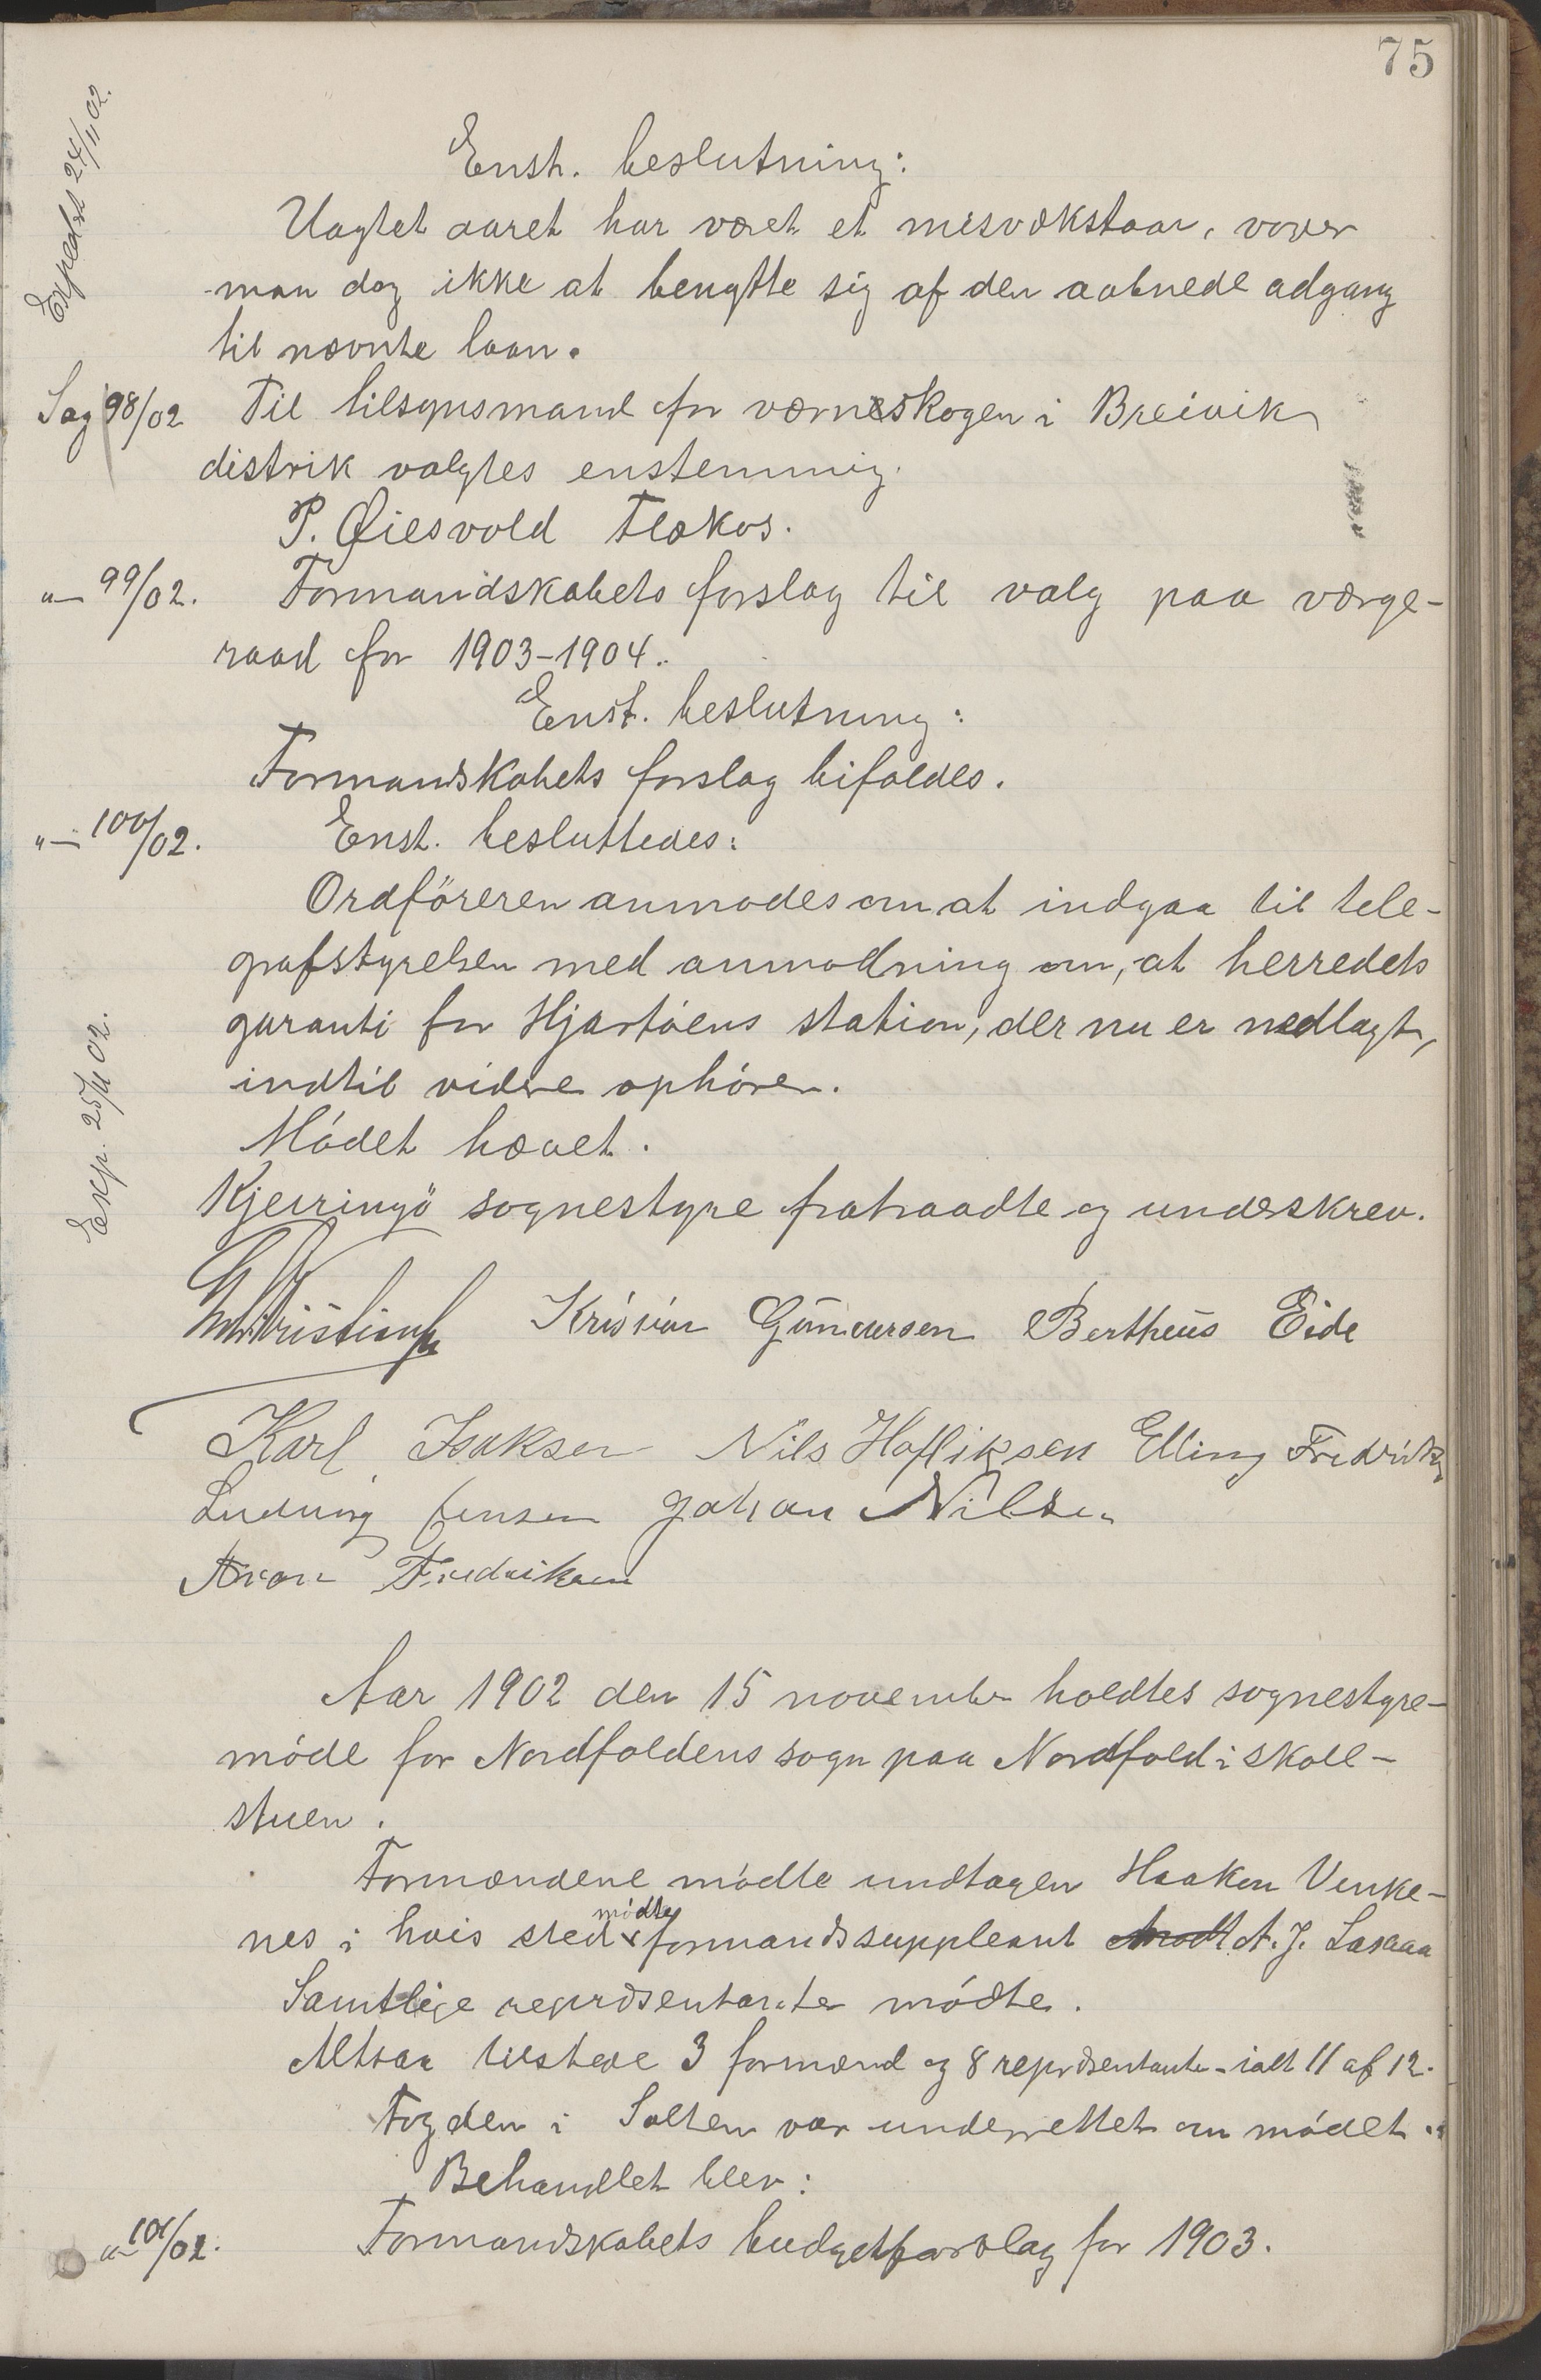 75
Expedert 24/11 02.
Ensh. beslutning:
Uagtet aaret har været et misvækstaar, vover
man dog ikke at benytte sig af den aabnede adgang
til nævnte laan.
Sag 98/02 Til tilsynsmand for værneskogen i Breivik
distrik valgtes enstemmig.
P. Øiesvold Flakos.
"— 99/02. Formandskabets forslag til valg paa værge-
raad for 1903-1904.
Enst. beslutning:
Formandskabets forslag bifaldes.
"— 100/02. Enst. besluttedes:
Ordföreren anmodes om at indgaa til tele-
grafstyrelsen med anmodning om, at herredets
garanti for Hjartöens station, der nu er nedlagt,
indtil videre ophörer.
Exp. 25/11 02.
Mödet hævet.
Kjerringö sognestyre fratraadte og underskrev.
Kristian Gundersen Bertheus Eide
Karl Isaksen Nils Hofliksen Elling Fredriks
Ludvig Jensen Johan Nilsen
Aron Fredriksen
Aar 1902 den 15 november holdtes sognestyre-
möde for Nordfoldens sogn paa Nordfold i skole-
stuen.
Formændene mödte undtagen Haakon Vinke-
nes i hvis sted mödte formandssuppleant A. J. Lasaa
Samtlige repræsentanter mödte.
Altsaa tilstede 3 formænd og 8 repræsentanter - ialt 11 af 12.
Fogden i Salten var underrettet om mödet.
Behandlet blev:
"— 101/02. Formandskabets budgetforslag for 1903.